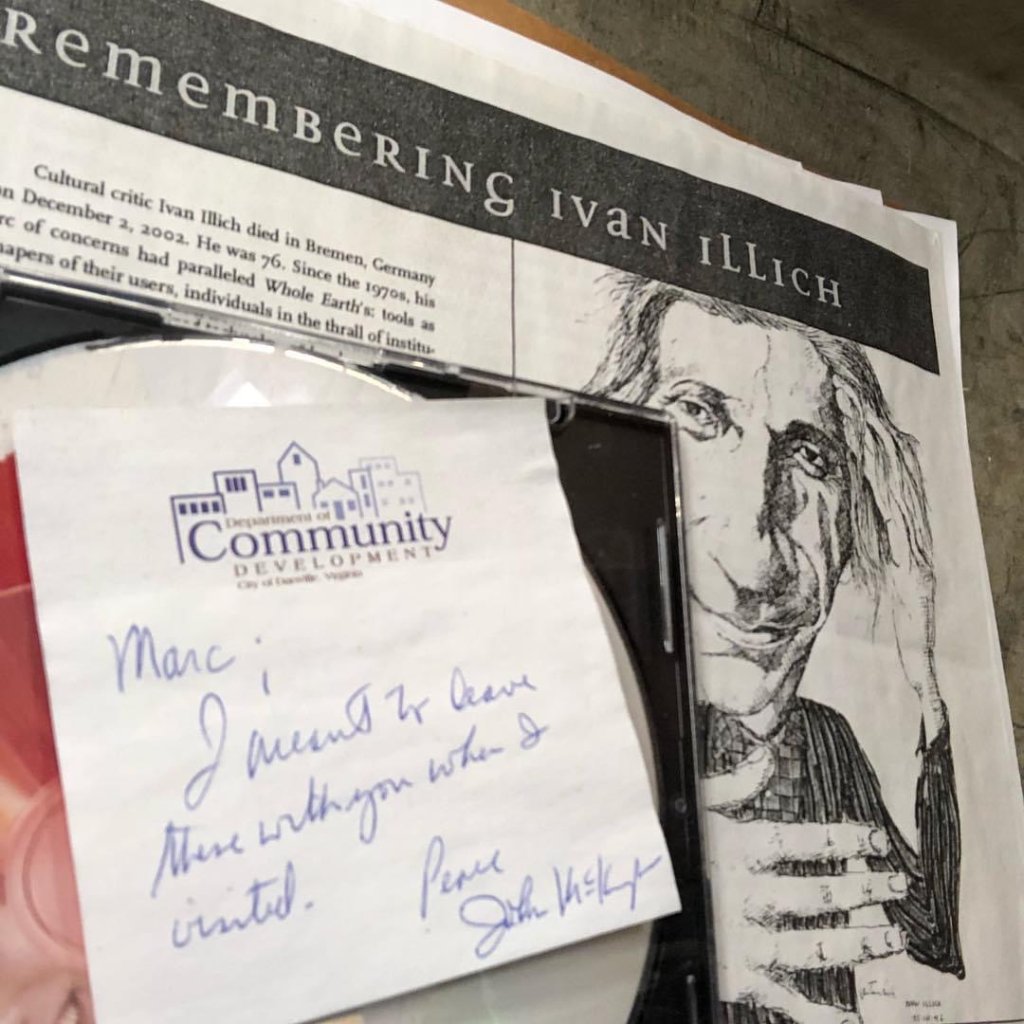 REMEMBERING IVAN ILLICH
Cultural critic Ivan Illich died in Bremen, Germany
on December 2, 2002. He was 76. Since the 1970s, his
arc of concerns had paralleled Whole Earth's: tools as
shapers of their users, individuals in the thrall of institu-
Department of
Community
DEVELOPMENT
City of Danville, Virginia
Marc;
I meant to leave
these with you when I
visited.
Peace
John McKnight
IVAN ILLICH